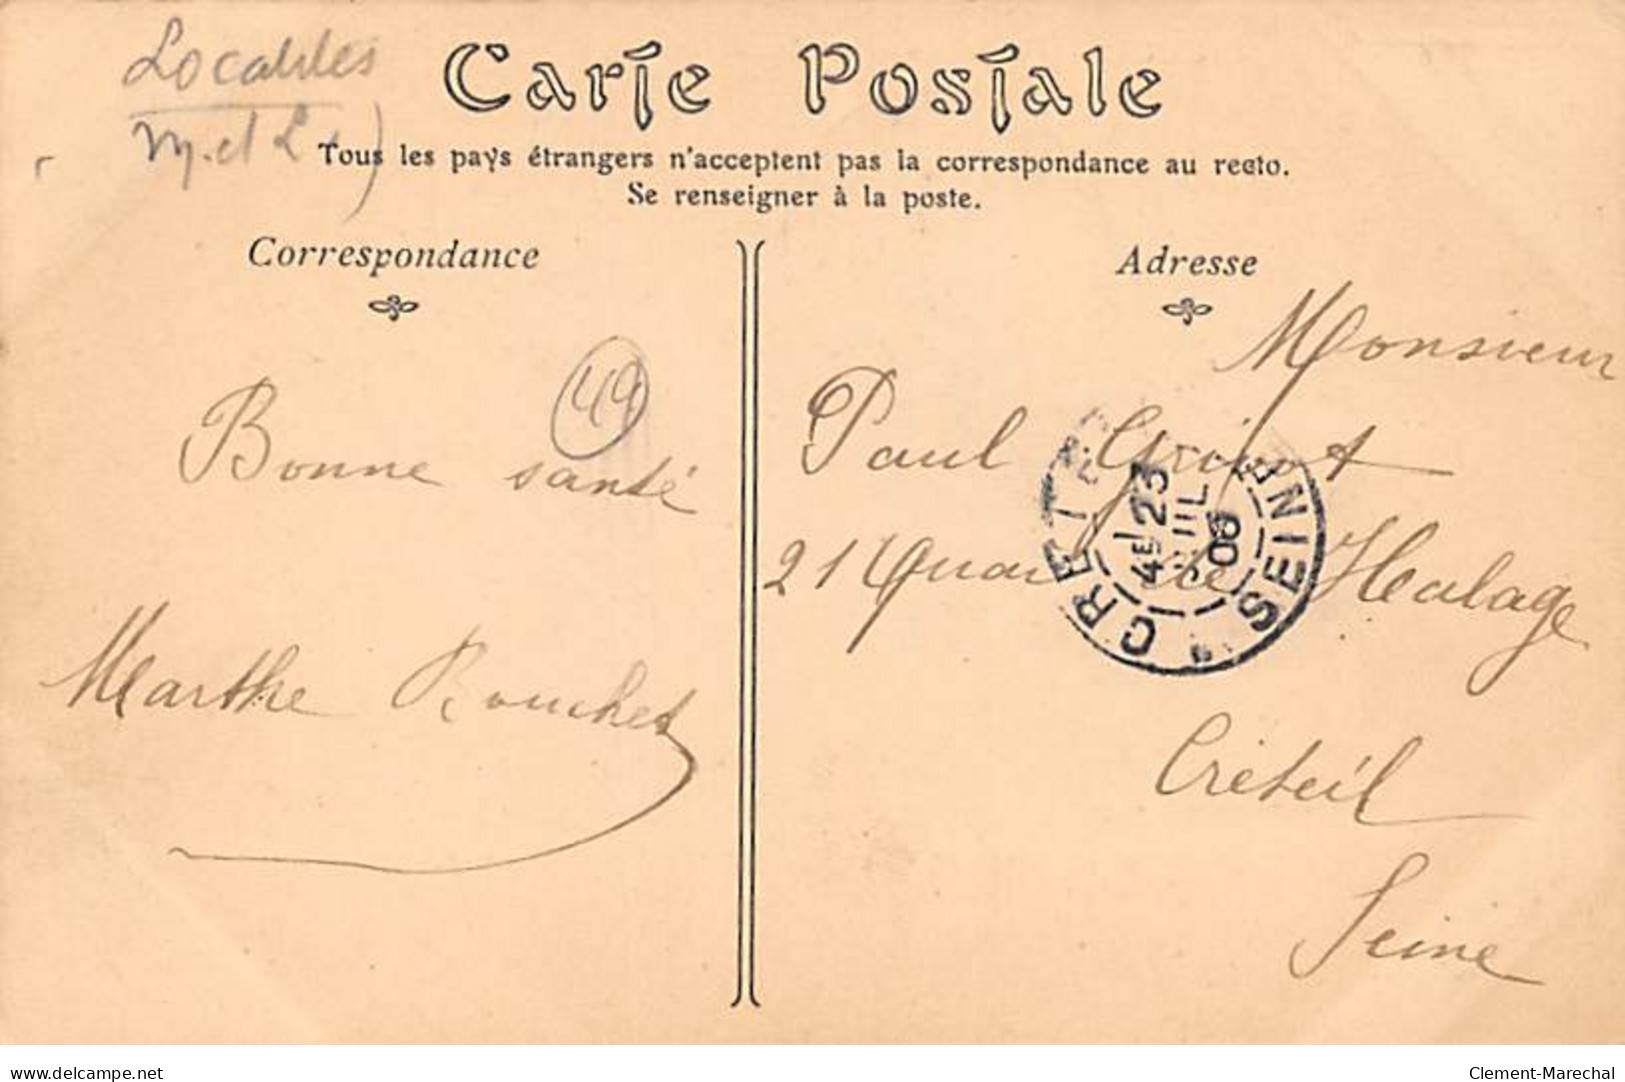 Locables
M. et L.)
Carte Postale
Tous les pays étrangers n'acceptent pas la correspondance au recto.
Se renseigner à la poste.
Correspondance
49
Bonne santé
Marthe Rouchet
Adresse
Monsieur
Paul
21 Quai de Halage
Créteil
Seine
CRETEIL
SEINE
4E 23
JUIL
06
delcampe.net
Clement-Marechal